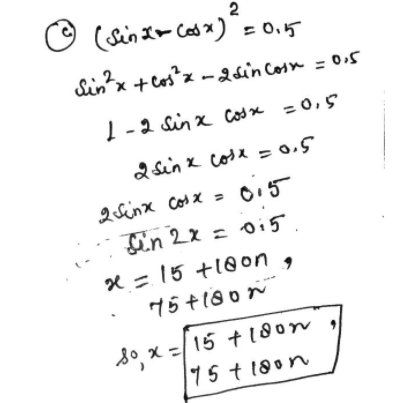 (c) (sin x - cos x)² = 0.5
sin²x + cos²x - 2 sin cos x = 0.5
1 - 2 sin x cos x = 0.5
2 sin x cos x = 0.5
2 sin x cos x = 0.5
∴ sin 2x = 0.5.
x = 15 + 180n,
75 + 180n
so, x = 15 + 180n,
75 + 180n